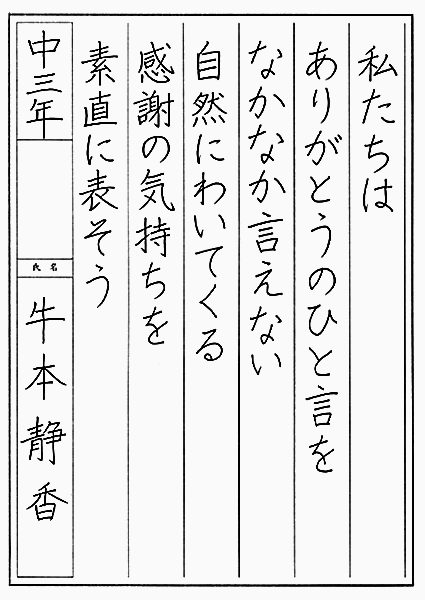 私たちは
ありがとうのひと言を
なかなか言えない
自然にわいてくる
感謝の気持ちを
素直に表そう
中三年
氏名
牛本静香